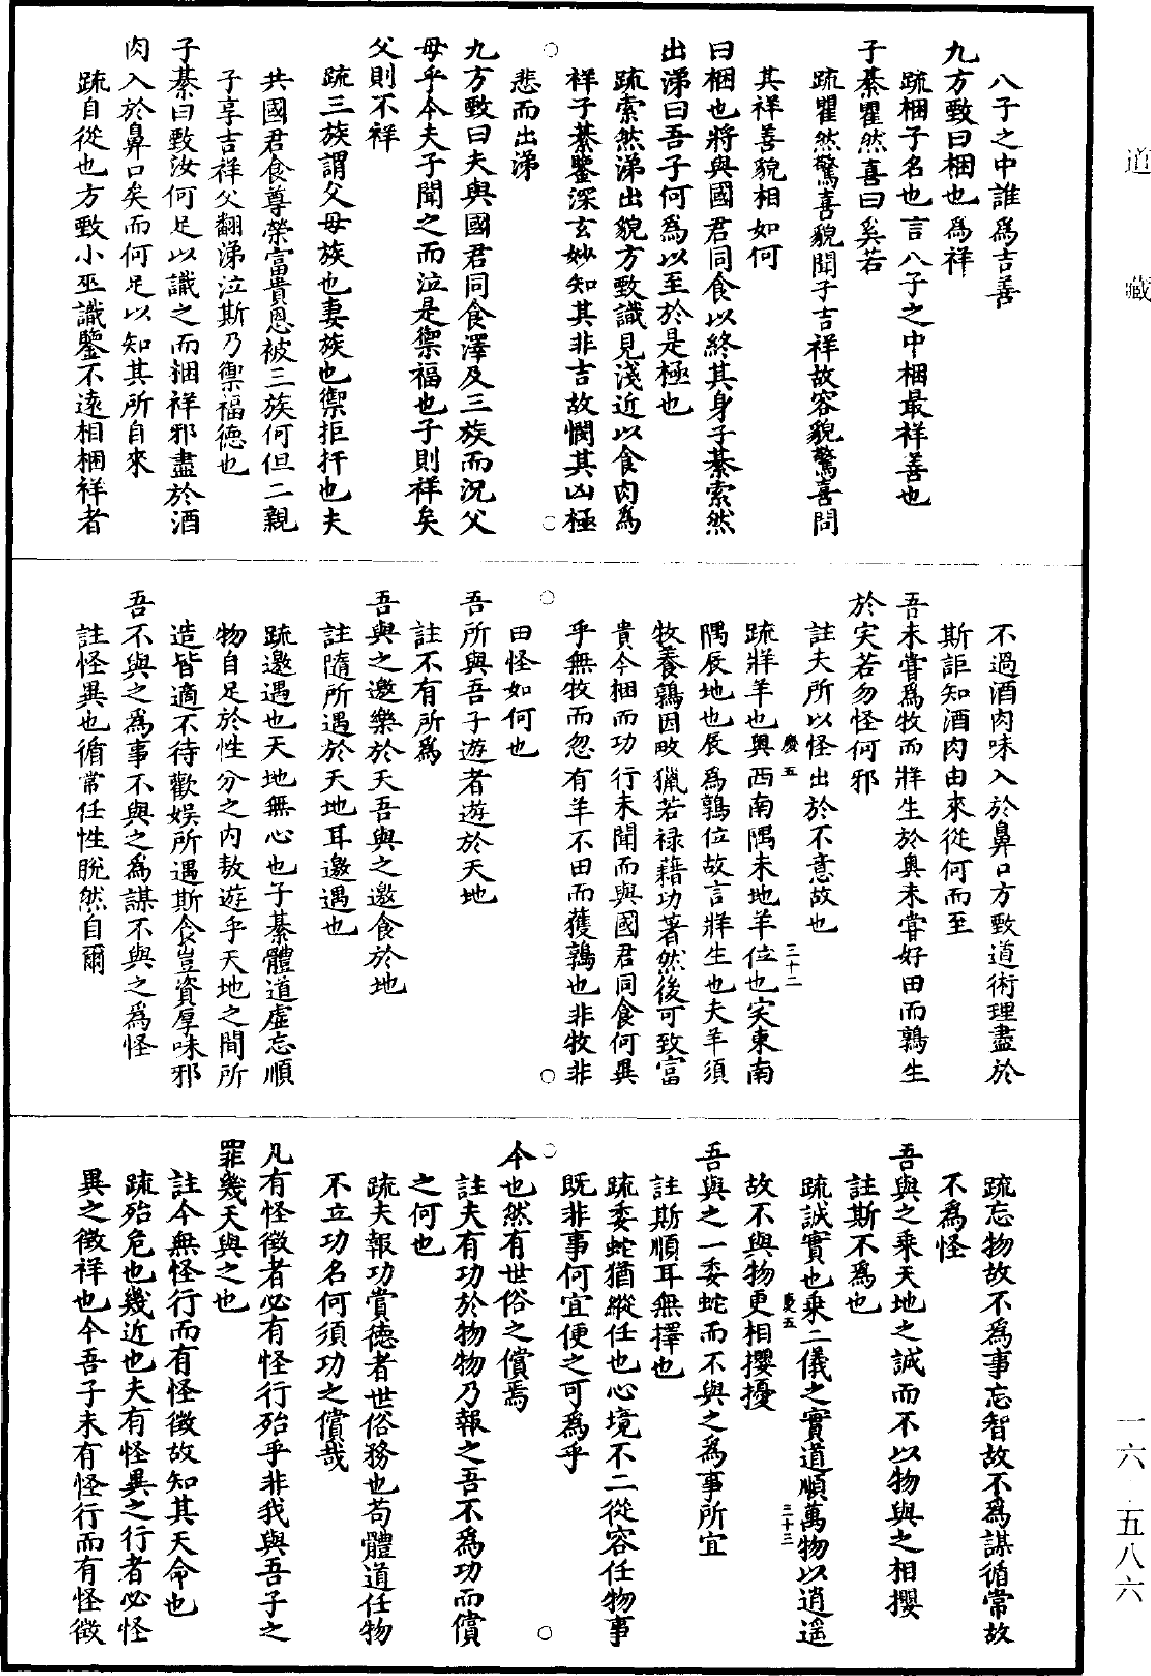 道藏
八子之中誰爲吉善
九方歅曰梱也爲祥
疏梱子名也言八子之中梱最祥善也
子綦瞿然喜曰奚若
疏瞿然驚喜貌聞子吉祥故容貌驚喜問
其祥善貌相如何
曰梱也將與國君同食以終其身子綦索然
出涕曰吾子何爲以至於是極也
疏索然涕出貌方歅識見淺近以食肉爲
祥子綦鑒深玄妙知其非吉故憫其凶極
悲而出涕
九方歅曰夫與國君同食澤及三族而況父
母乎今夫子聞之而泣是禦福也子則祥矣
父則不祥
疏三族謂父母族也妻族也禦拒扞也夫
共國君食尊榮富貴恩被三族何但二親
子享吉祥父翻涕泣斯乃禦福德也
子綦曰歅汝何足以識之而梱祥邪盡於酒
肉入於鼻口矣而何足以知其所自來
疏自從也方歅小巫識鑒不遠相梱祥者
不過酒肉味入於鼻口方歅道術理盡於
斯詎知酒肉由來從何而至
吾未嘗爲牧而牂生於奥未嘗好田而鶉生
於宎若勿怪何邪
註夫所以怪出於不意故也
慶五
三十二
疏牂羊也奥西南隅未地羊位也宎東南
隅辰地也辰爲鶉位故言牂生也夫羊須
牧養鶉因畋獵若禄藉功著然後可致富
貴今梱而功行未聞而與國君同食何異
乎無牧而忽有羊不田而獲鶉也非牧非
田怪如何也
吾所與吾子遊者遊於天地
註不有所爲
吾與之邀樂於天吾與之邀食於地
註隨所遇於天地耳邀遇也
疏邀遇也天地無心也子綦體道虛忘順
物自足於性分之内敖遊乎天地之間所
造皆適不待歡娱所遇斯食豈資厚味邪
吾不與之爲事不與之爲謀不與之爲怪
註怪異也循常任性脫然自爾
疏忘物故不爲事忘智故不爲謀循常故
不爲怪
吾與之乘天地之誠而不以物與之相攖
註斯不爲也
疏誠實也乘二儀之實道順萬物以逍遥
慶五
三十三
故不與物更相攖擾
吾與之一委蛇而不與之爲事所宜
註斯順耳無擇也
疏委蛇猶縱任也心境不二從容任物事
既非事何宜便之可爲乎
今也然有世俗之償焉
註夫有功於物物乃報之吾不爲功而償
之何也
疏夫報功賞德者世俗務也苟體道任物
不立功名何須功之償哉
凡有怪徵者必有怪行殆乎非我與吾子之
罪幾天與之也
註今無怪行而有怪徵故知其天命也
疏殆危也幾近也夫有怪異之行者必怪
異之徵祥也今吾子未有怪行而有怪徵
一六·五八六